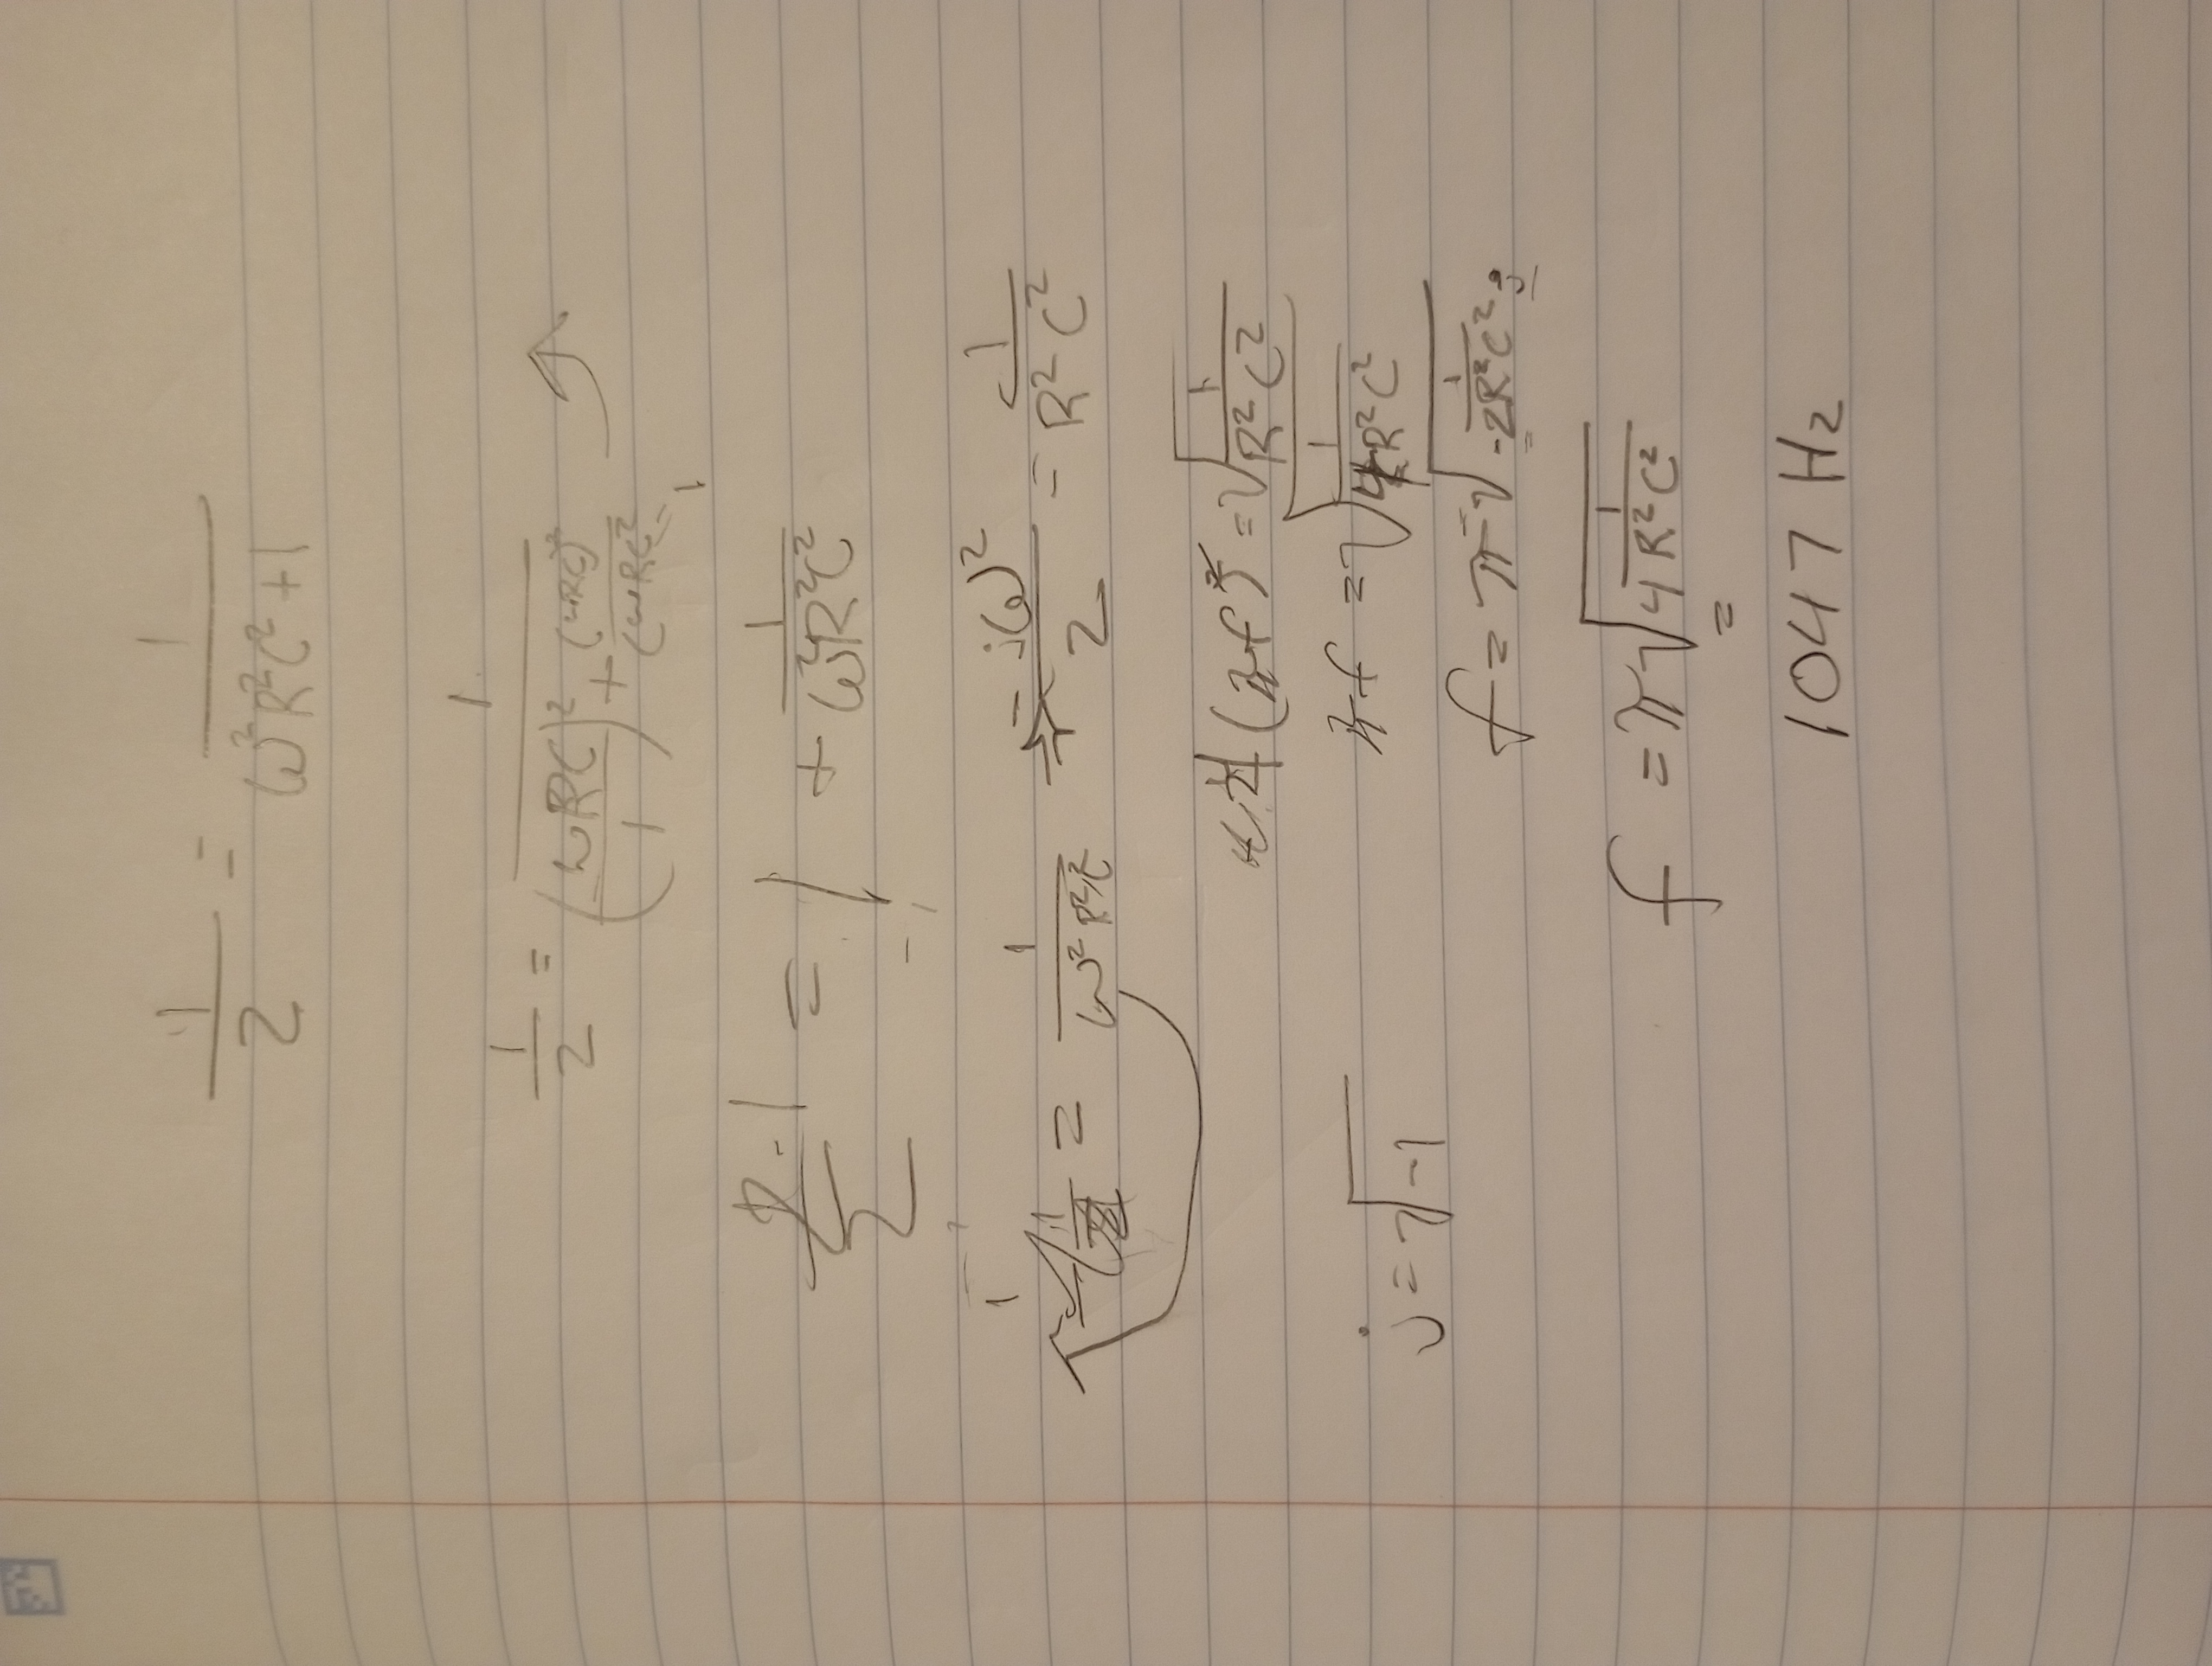 1/2 = 1/(ω²R²C² + 1)
1/2 = 1/((ωRC/1)² + (ωRC)²/(ωRC)²
1
2 - 1 = 1 + 1/(ω²R²C²)
2
- 1
1
1 = 1/(ω²R²C²) → -jω²/2 = 1/(R²C²)
4(πf)² = √(1/(R²C²))
πf = √(1/(4R²C²))
j = √-1
f = π √(1/(-2R²C²)) j
f = π √(1/(4R²C²))
=
1047 Hz